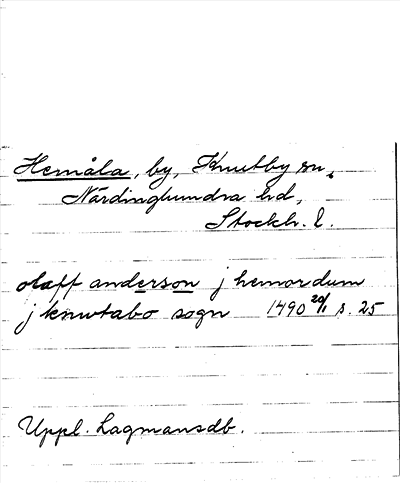 Hemåla, by, Knutby sn,
Närdinghundra hd,
Stockh. l.
olaff anderson j hemordum
j knwtabo sogn 1490 20/1 s. 25
Uppl. Lagmansdb.